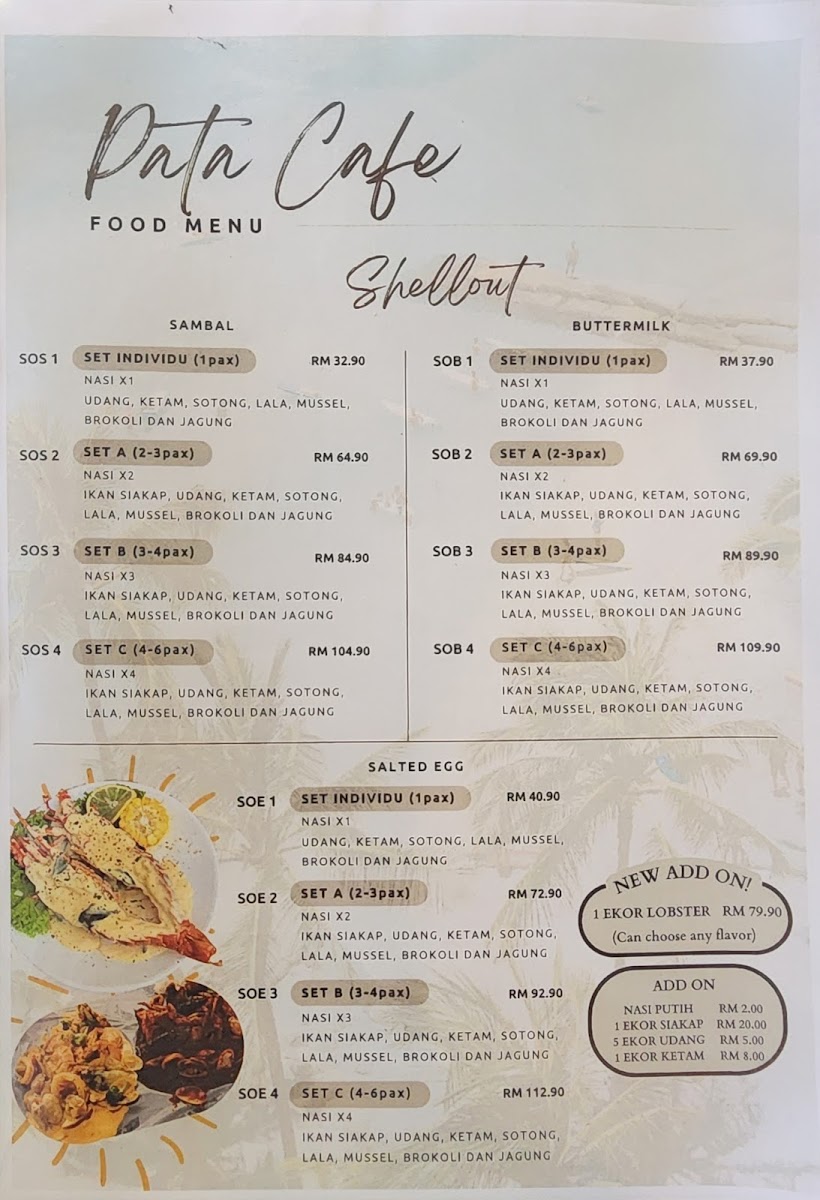 Pata Cafe
FOOD MENU
Shellout
SAMBAL
SOS 1 SET INDIVIDU (1pax) RM 32.90
NASI X1
UDANG, KETAM, SOTONG, LALA, MUSSEL,
BROKOLI DAN JAGUNG
SOS 2 SET A (2-3pax) RM 64.90
NASI X2
IKAN SIAKAP, UDANG, KETAM, SOTONG,
LALA, MUSSEL, BROKOLI DAN JAGUNG
SOS 3 SET B (3-4pax) RM 84.90
NASI X3
IKAN SIAKAP, UDANG, KETAM, SOTONG,
LALA, MUSSEL, BROKOLI DAN JAGUNG
SOS 4 SET C (4-6pax) RM 104.90
NASI X4
IKAN SIAKAP, UDANG, KETAM, SOTONG,
LALA, MUSSEL, BROKOLI DAN JAGUNG
BUTTERMILK
SOB 1 SET INDIVIDU (1pax) RM 37.90
NASI X1
UDANG, KETAM, SOTONG, LALA, MUSSEL,
BROKOLI DAN JAGUNG
SOB 2 SET A (2-3pax) RM 69.90
NASI X2
IKAN SIAKAP, UDANG, KETAM, SOTONG,
LALA, MUSSEL, BROKOLI DAN JAGUNG
SOB 3 SET B (3-4pax) RM 89.90
NASI X3
IKAN SIAKAP, UDANG, KETAM, SOTONG,
LALA, MUSSEL, BROKOLI DAN JAGUNG
SOB 4 SET C (4-6pax) RM 109.90
NASI X4
IKAN SIAKAP, UDANG, KETAM, SOTONG,
LALA, MUSSEL, BROKOLI DAN JAGUNG
SALTED EGG
SOE 1 SET INDIVIDU (1pax) RM 40.90
NASI X1
UDANG, KETAM, SOTONG, LALA, MUSSEL,
BROKOLI DAN JAGUNG
SOE 2 SET A (2-3pax) RM 72.90
NASI X2
IKAN SIAKAP, UDANG, KETAM, SOTONG,
LALA, MUSSEL, BROKOLI DAN JAGUNG
SOE 3 SET B (3-4pax) RM 92.90
NASI X3
IKAN SIAKAP, UDANG, KETAM, SOTONG,
LALA, MUSSEL, BROKOLI DAN JAGUNG
SOE 4 SET C (4-6pax) RM 112.90
NASI X4
IKAN SIAKAP, UDANG, KETAM, SOTONG,
LALA, MUSSEL, BROKOLI DAN JAGUNG
NEW ADD ON!
1 EKOR LOBSTER RM 79.90
(Can choose any flavor)
ADD ON
NASI PUTIH RM 2.00
1 EKOR SIAKAP RM 20.00
5 EKOR UDANG RM 5.00
1 EKOR KETAM RM 8.00